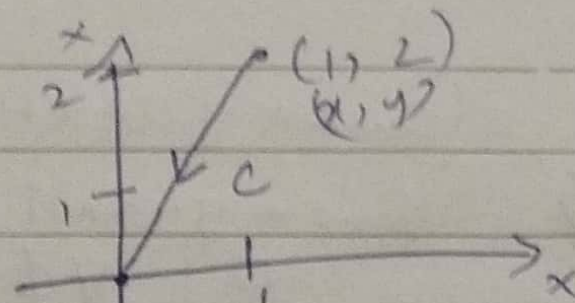 x
2
(1, 2)
(x, y)
1
C
1
x